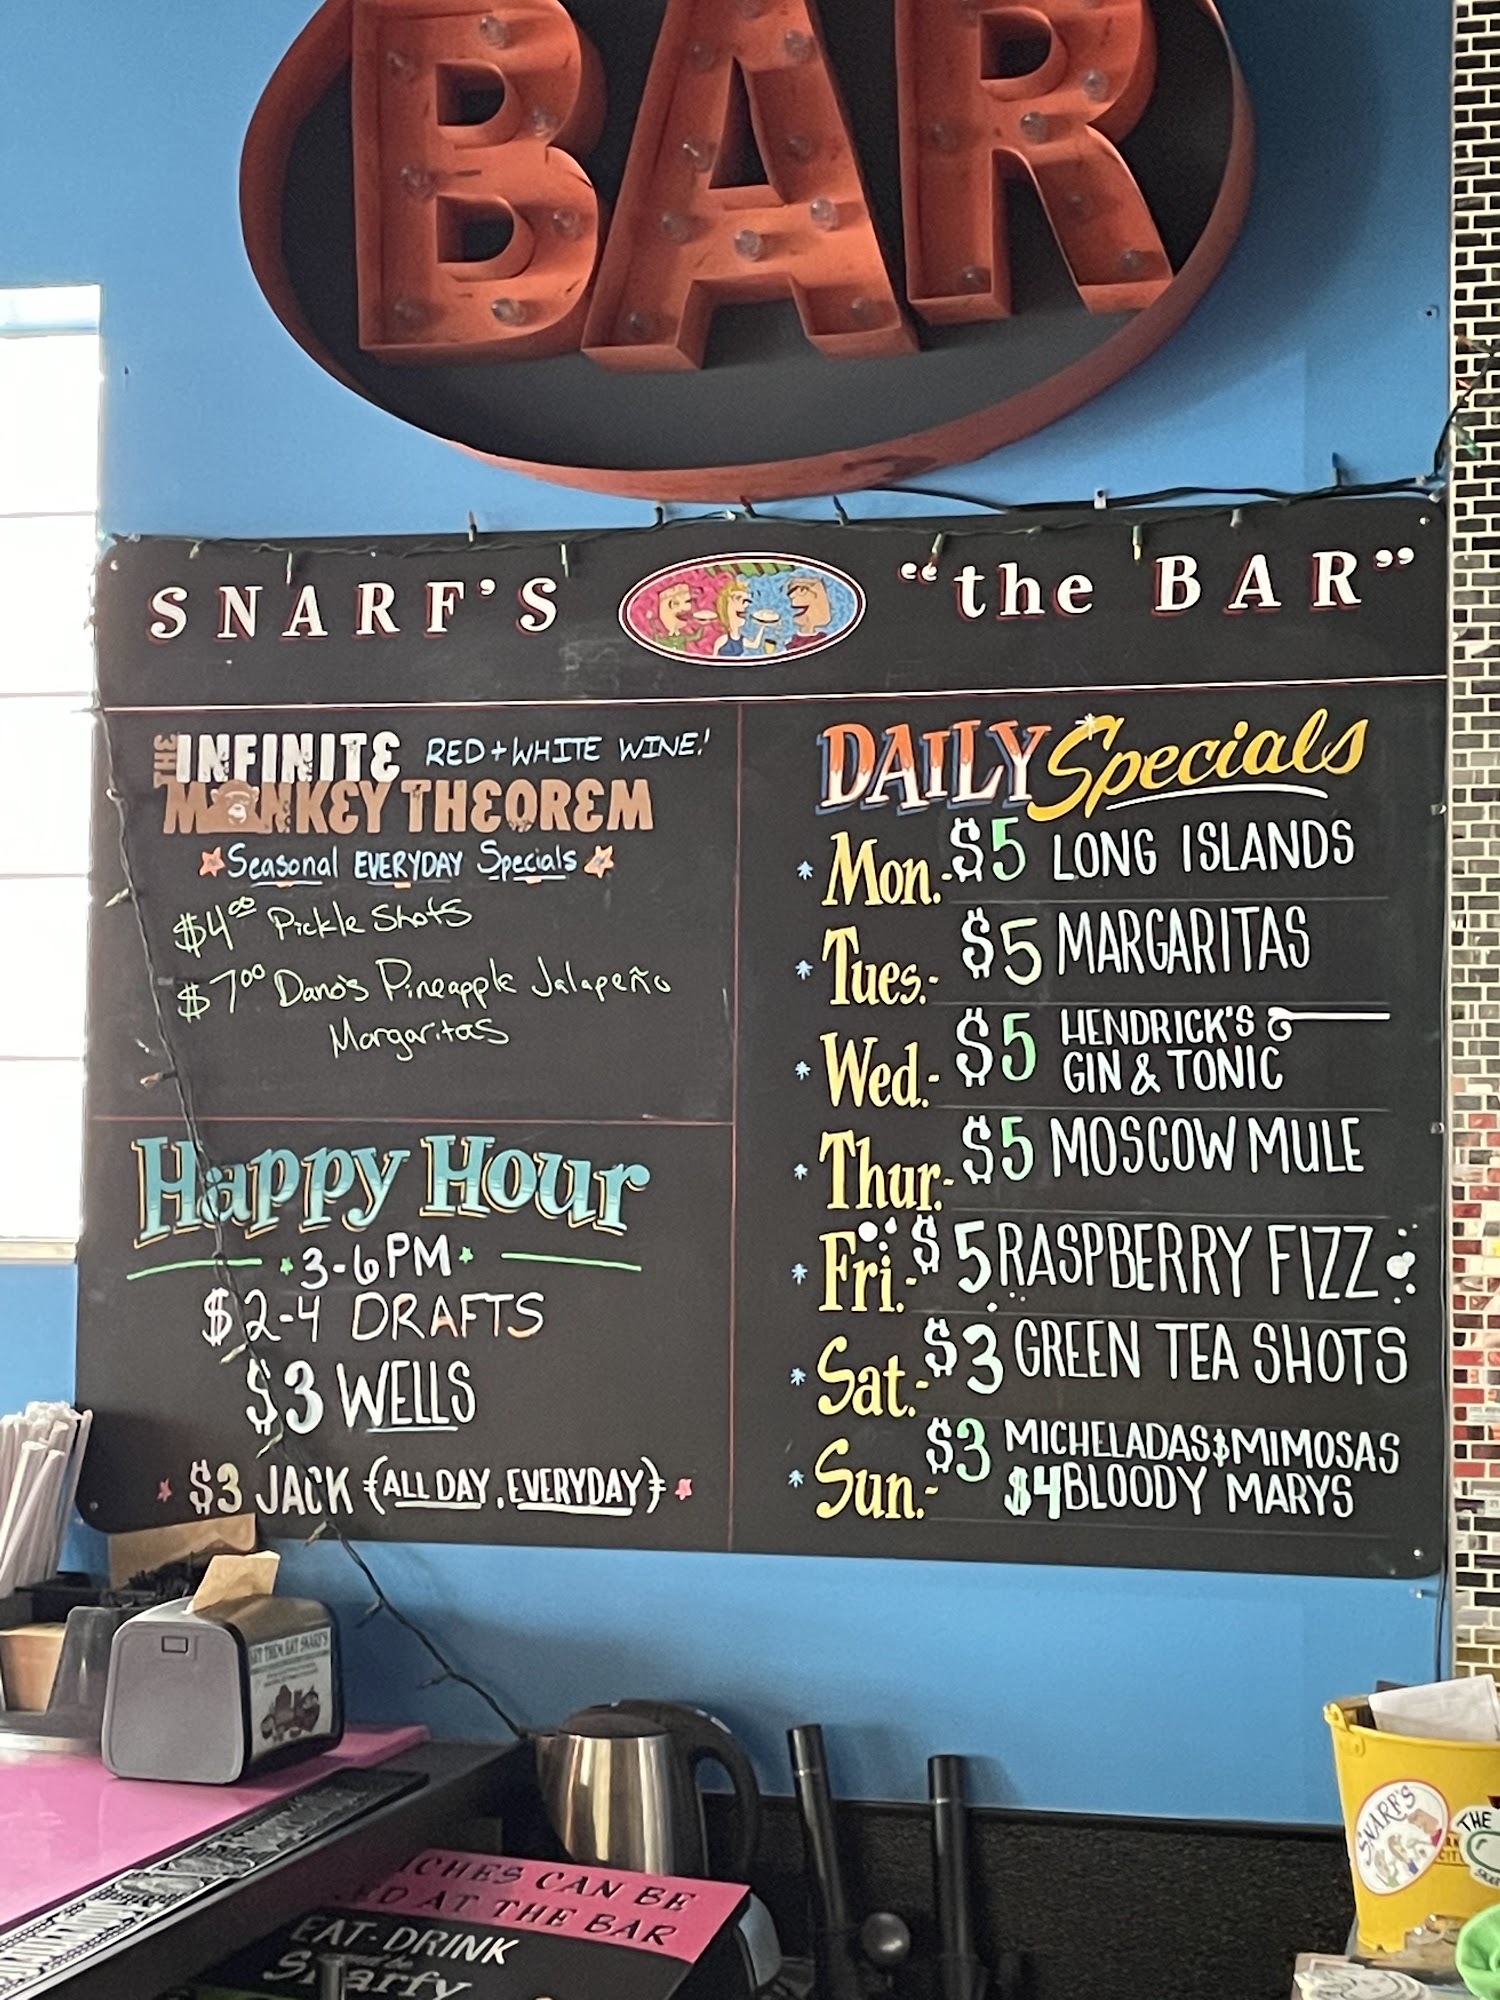 BAR
SNARF'S "the BAR"
THE INFINITE RED + WHITE WINE!
MONKEY THEOREM
Seasonal EVERYDAY Specials
$4.00 Pickle Shots
$7.00 Dano's Pineapple Jalapeño
Margaritas
Happy Hour
3-6 PM
$2-4 DRAFTS
$3 WELLS
$3 JACK {ALL DAY, EVERYDAY}
DAILY Specials
* Mon.- $5 LONG ISLANDS
* Tues.- $5 MARGARITAS
* Wed.- $5 HENDRICK'S
GIN & TONIC
* Thur.- $5 MOSCOW MULE
* Fri.- $5 RASPBERRY FIZZ
* Sat.- $3 GREEN TEA SHOTS
* Sun.- $3 MICHELADAS & MIMOSAS
$4 BLOODY MARYS
LET THEM EAT SNARF'S
ICHES CAN BE
ED AT THE BAR
EAT-DRINK
Snarfy
SNARF'S
THE